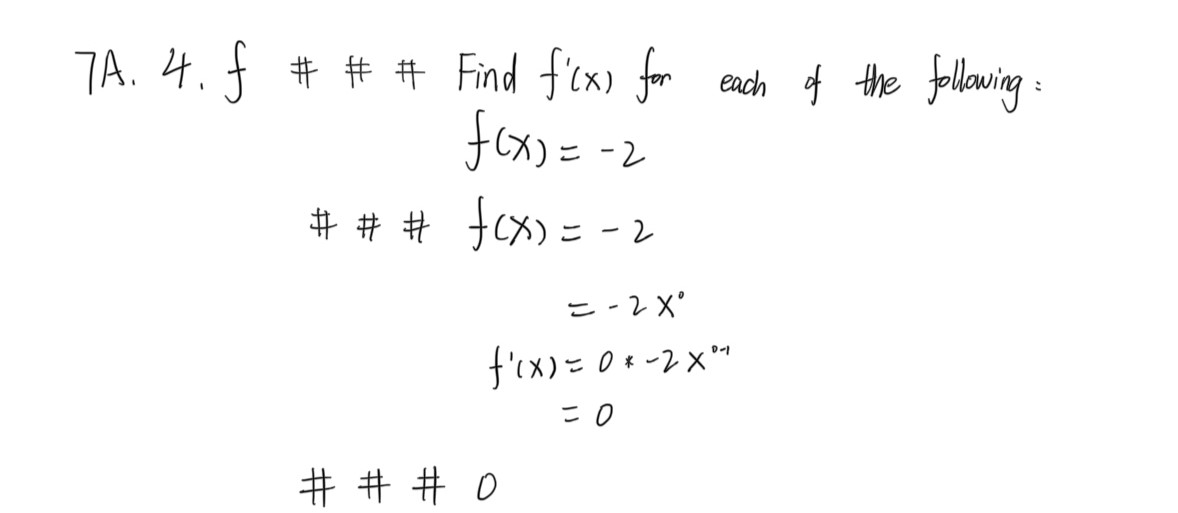 7A. 4. f # # # Find f'(x) for each of the following:
f(x) = -2
# # # f(x) = -2
= -2x⁰
f'(x) = 0 * -2x⁰⁻¹
= 0
# # # 0